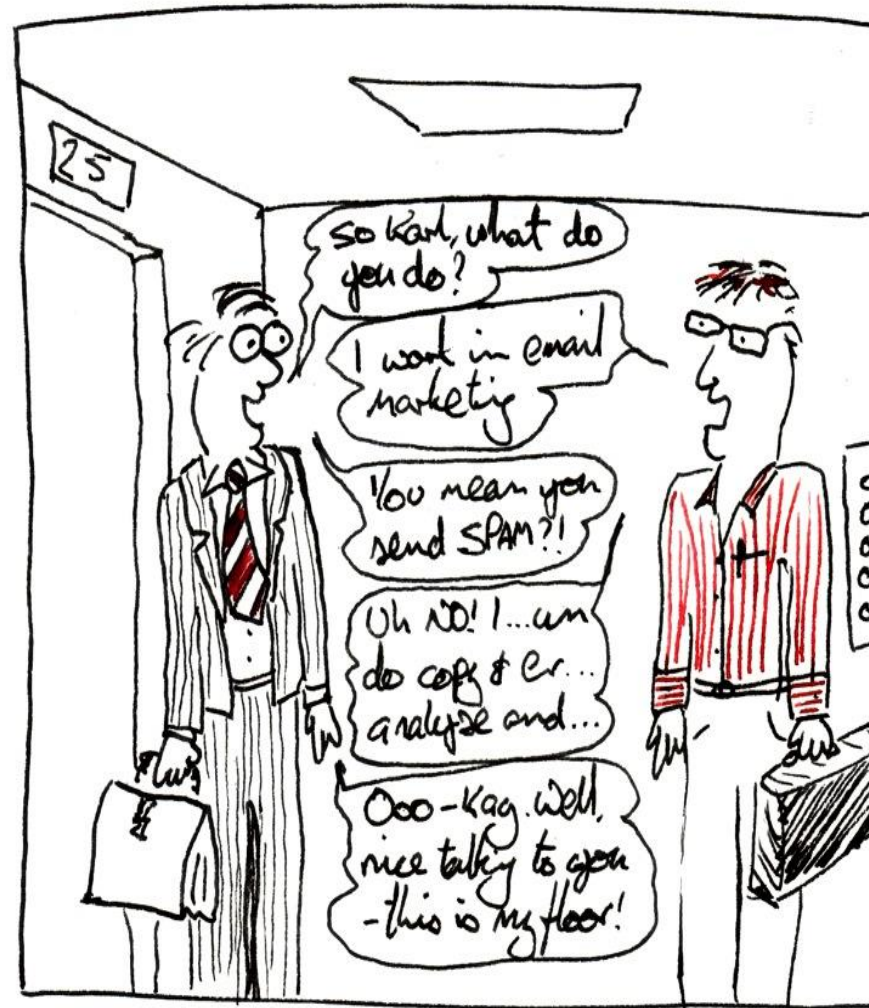 25
so Karl, what do
you do?
I work in email
marketing
You mean you
send SPAM?!
Uh NO! I...um
do copy & er...
analyze and...
Ooo-Kay. Well,
nice talking to you
-this is my floor!